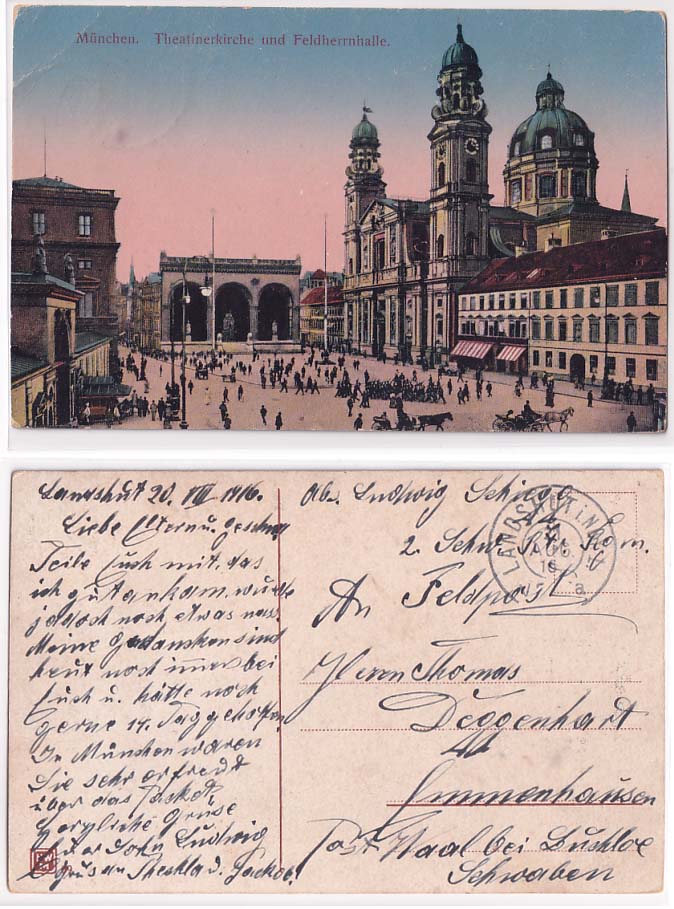 München. Theatinerkirche und Feldherrnhalle.
Landshut 20. VIII 1916.
Liebe Eltern u. Geschw
Teile Euch mit, das
ich gut ankam, wurde
jedoch noch etwas nass.
Meine Gedanken sind
heut noch immer bei
Euch u. hätte noch
gerne 14. Tag geholfen
In München waren
Sie sehr erfreut
über das Packet,
herzliche Grüse
Euer Sohn Ludwig
Grus an Theckla u. Jackob.
Ab. Ludwig Schiegg
2. Schw. Rtr. Rgm.
LANDSHUT
AUG
16
a
An Feldpost
Herrn Thomas
Deggenhart
in
Emmenhausen
Post Waal bei Buchloe
Schwaben